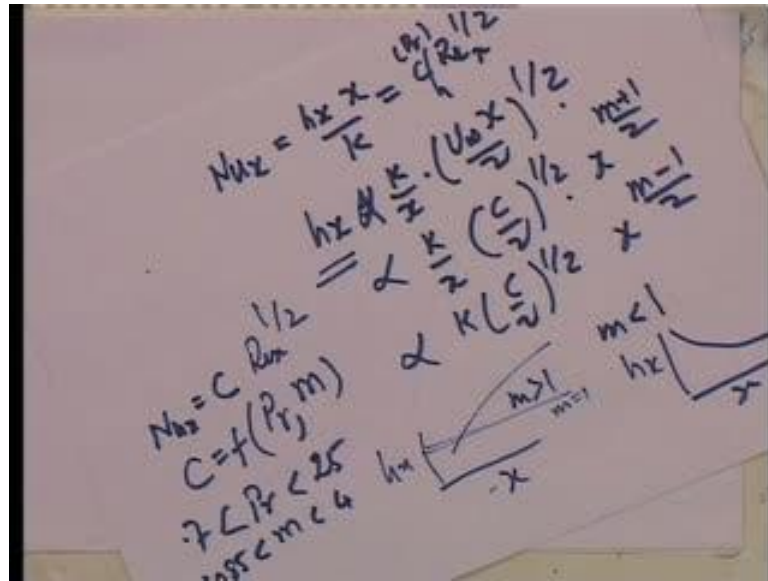 Nux = hx x / K = C (Pr) Rex^1/2
hx α K/x · (U∞ x / ν)^1/2 ·
α K/x (C/ν)^1/2 · x^(m+1)/2
α K (C/ν)^1/2 x^(m-1)/2
Nux = C Rex^1/2
C = f(Pr, m)
.7 < Pr < 25
085 < m < 4
hx
m>1
m=1
x
m<1
hx
x